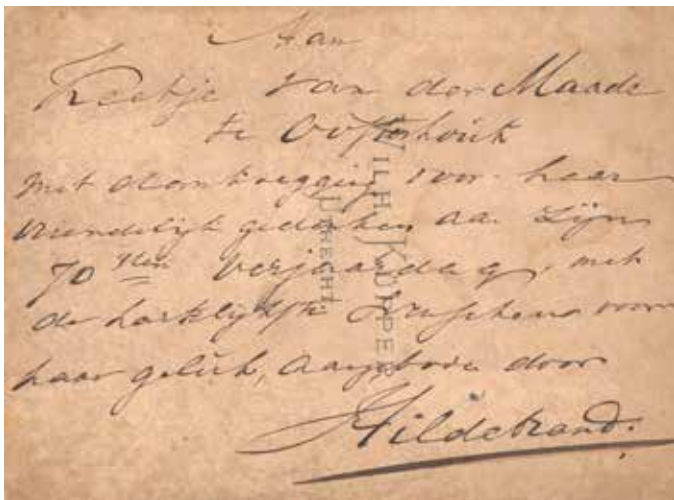 Aan
Keetje van der Maade
te Oosterhout
met dankzegging voor haar
vriendelijk gedenken aan zijn
70sten verjaardag, met
de hartelijkste wenschen voor
haar geluk, aangeboden door
Hildebrand.
WILH. KÜPPER
UTRECHT